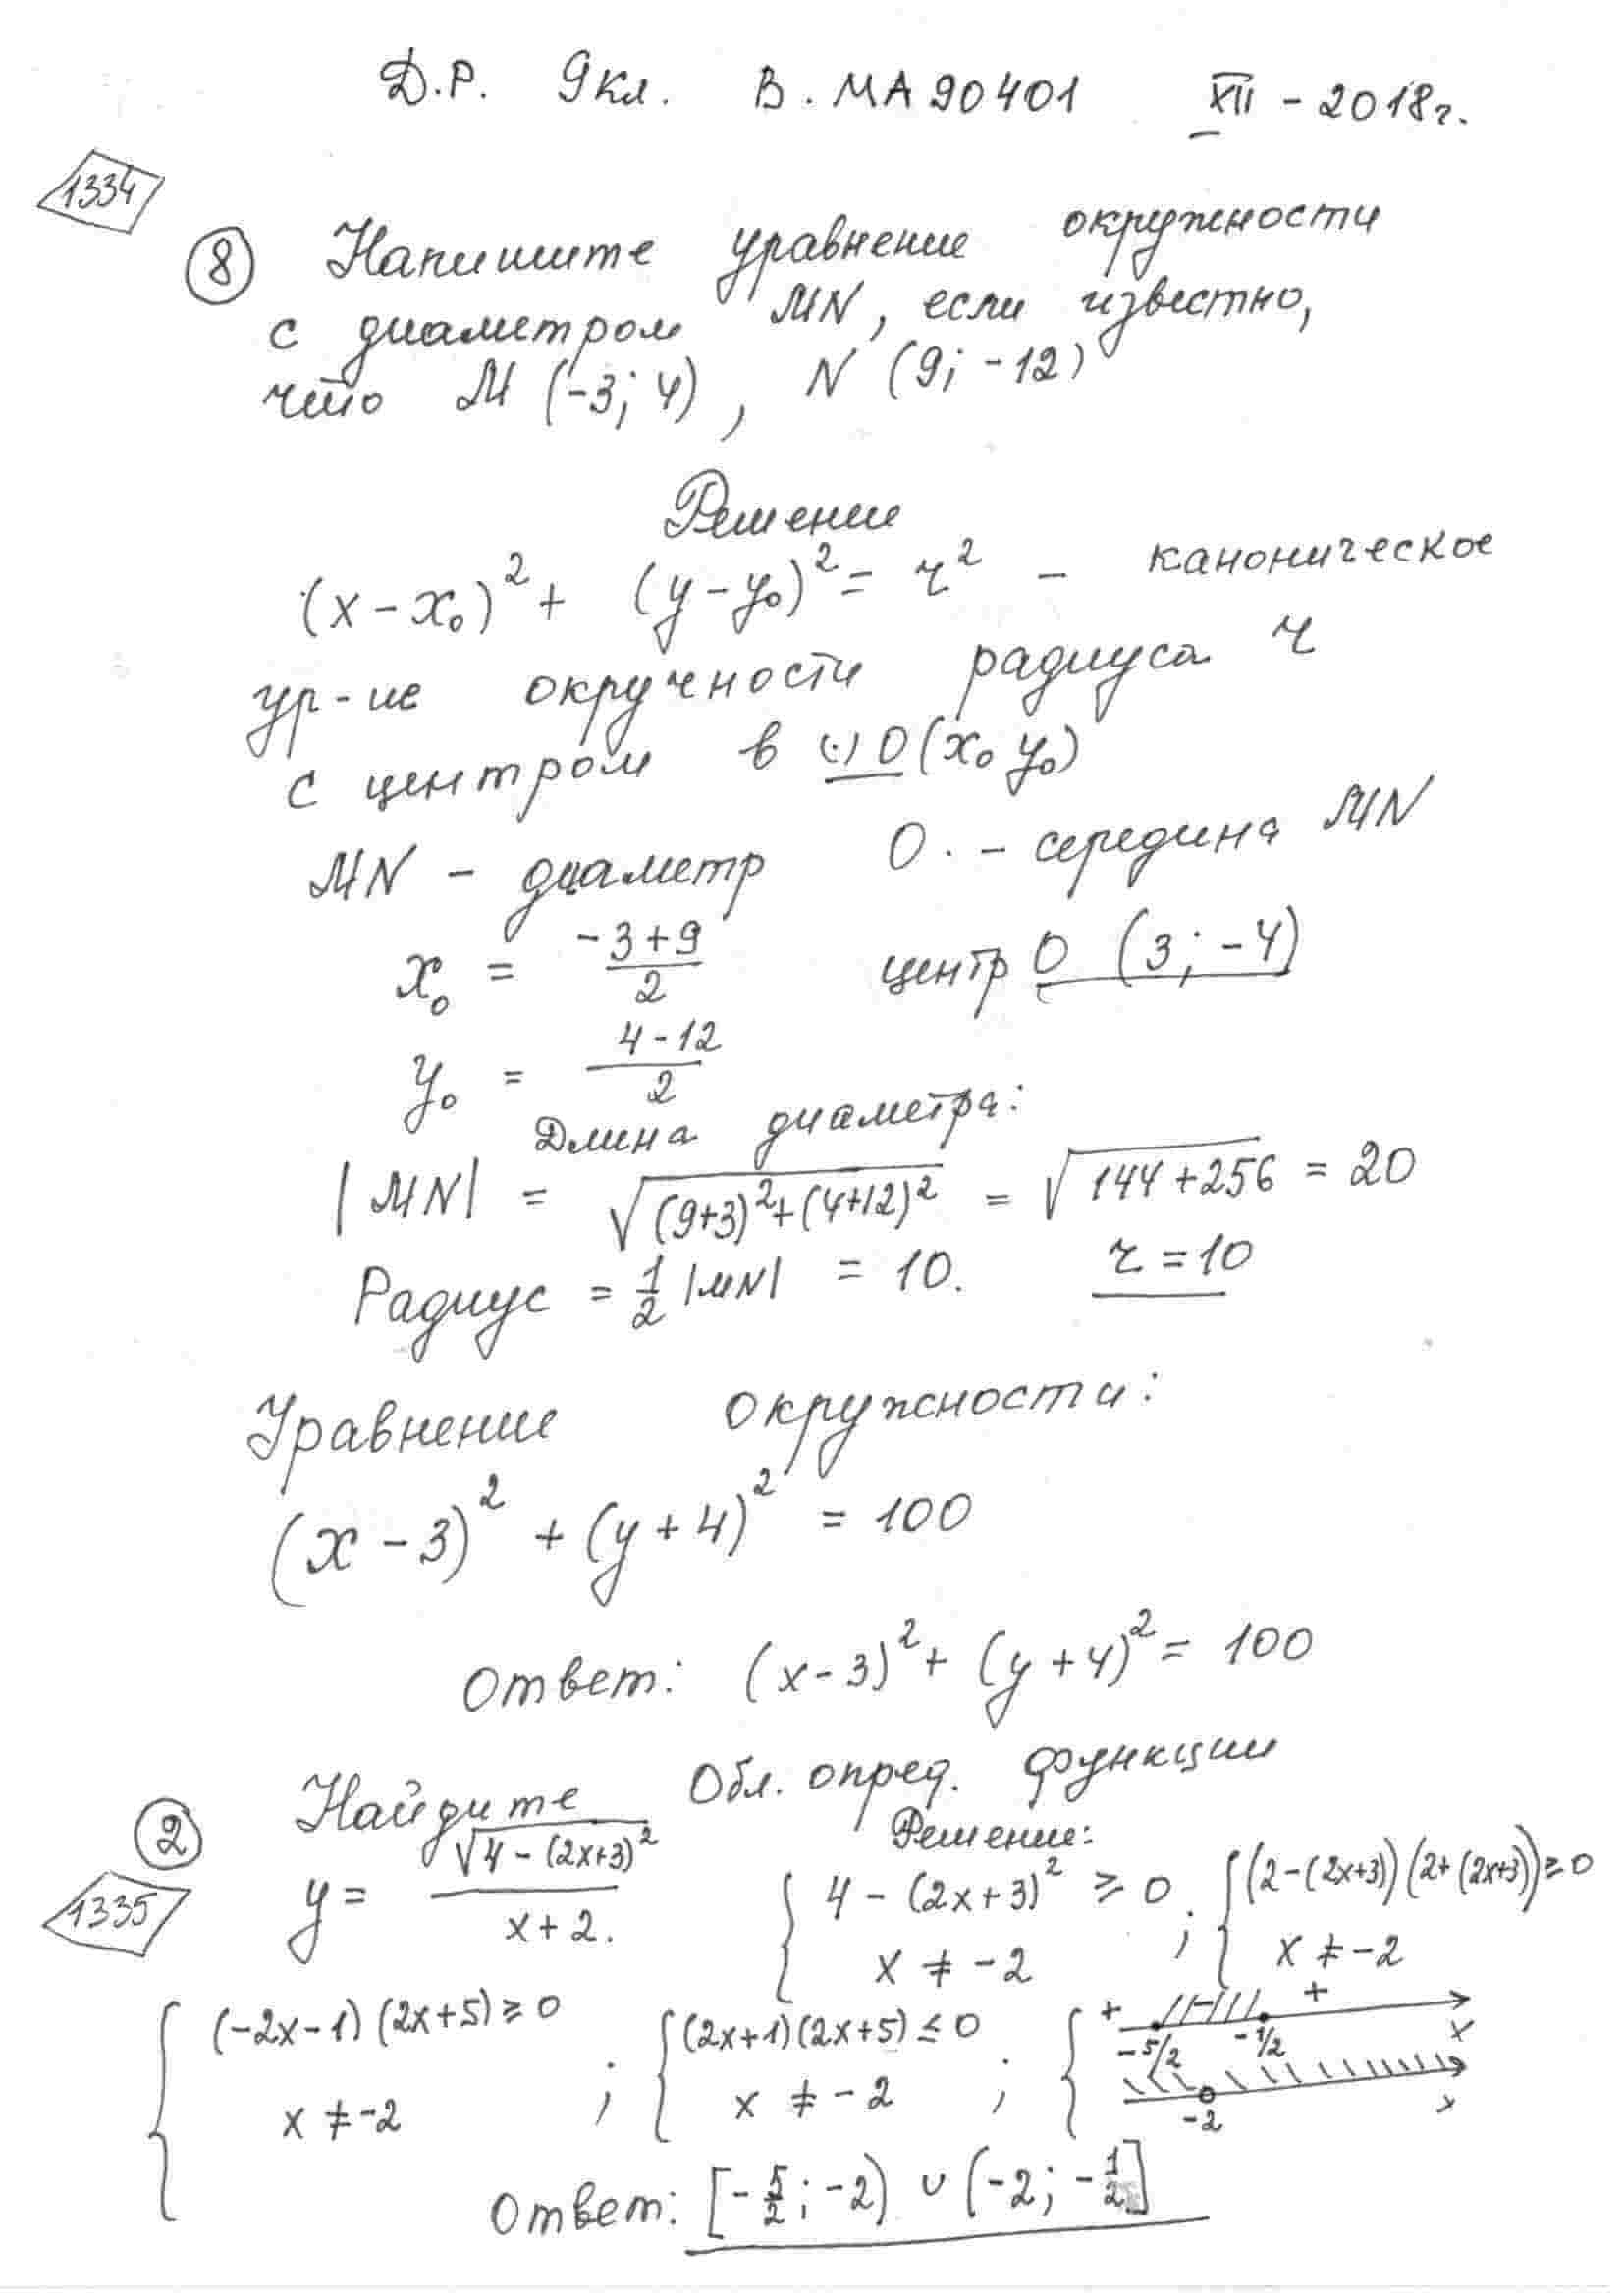 Д.Р. 9кл. В. МА90401 XII - 2018г.
1334
8 Напишите уравнение окружности
с диаметром MN, если известно,
что M (-3; 4), N (9; -12)
Решение
(x - x₀)² + (y - y₀)² = r² - каноническое
ур-ие окручности радиуса r
с центром в (·) O (x₀ y₀)
MN - диаметр O. - середина MN
x₀ = (-3+9)/2 центр O (3; -4)
y₀ = (4-12)/2
Длина диаметра:
|MN| = √((9+3)²+(4+12)²) = √(144+256) = 20
Радиус = 1/2 |MN| = 10. r = 10
Уравнение окружности:
(x - 3)² + (y + 4)² = 100
Ответ: (x - 3)² + (y + 4)² = 100
2 Найдите Обл. опред. функции
Решение:
1335
y = √(4 - (2x+3)²)/(x + 2). { 4 - (2x+3)² ≥ 0 ; { (2-(2x+3))(2+(2x+3)) ≥ 0
x ≠ -2 x ≠ -2
{ (-2x-1)(2x+5) ≥ 0 ; { (2x+1)(2x+5) ≤ 0 ; { + - + x
-5/2 -1/2
x ≠ -2 x ≠ -2 -2 x
Ответ: [-5/2; -2) ∪ (-2; -1/2]